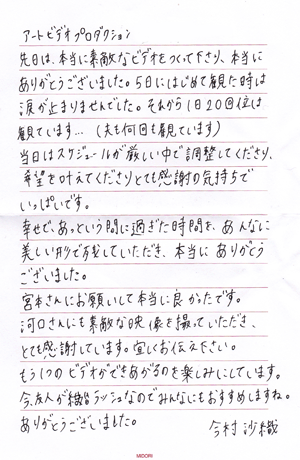 アートビデオプロダクション
先日は、本当に素敵なビデオをつくって下さり、本当に
ありがとうございました。5日にはじめて観た時は
涙が止まりませんでした。それから1日20回位は
観ています… (夫も何回も観ています)
当日はスケジュールが厳しい中で調整してくださり、
希望を叶えてくださりとても感謝の気持ちで
いっぱいです。
幸せで、あっという間に過ぎた時間を、あんなに
美しい形で残していただき、本当に ありがとう
ございました。
宮本さんにお願いして本当に良かったです。
河口さんにも素敵な映像を撮っていただき、
とても感謝しています。宜しくお伝え下さい。
もう1つのビデオができあがるのを楽しみにしています。
今、友人が結婚ラッシュなのでみんなにもおすすめしますね。
ありがとうございました。
今村 沙織
MIDORI